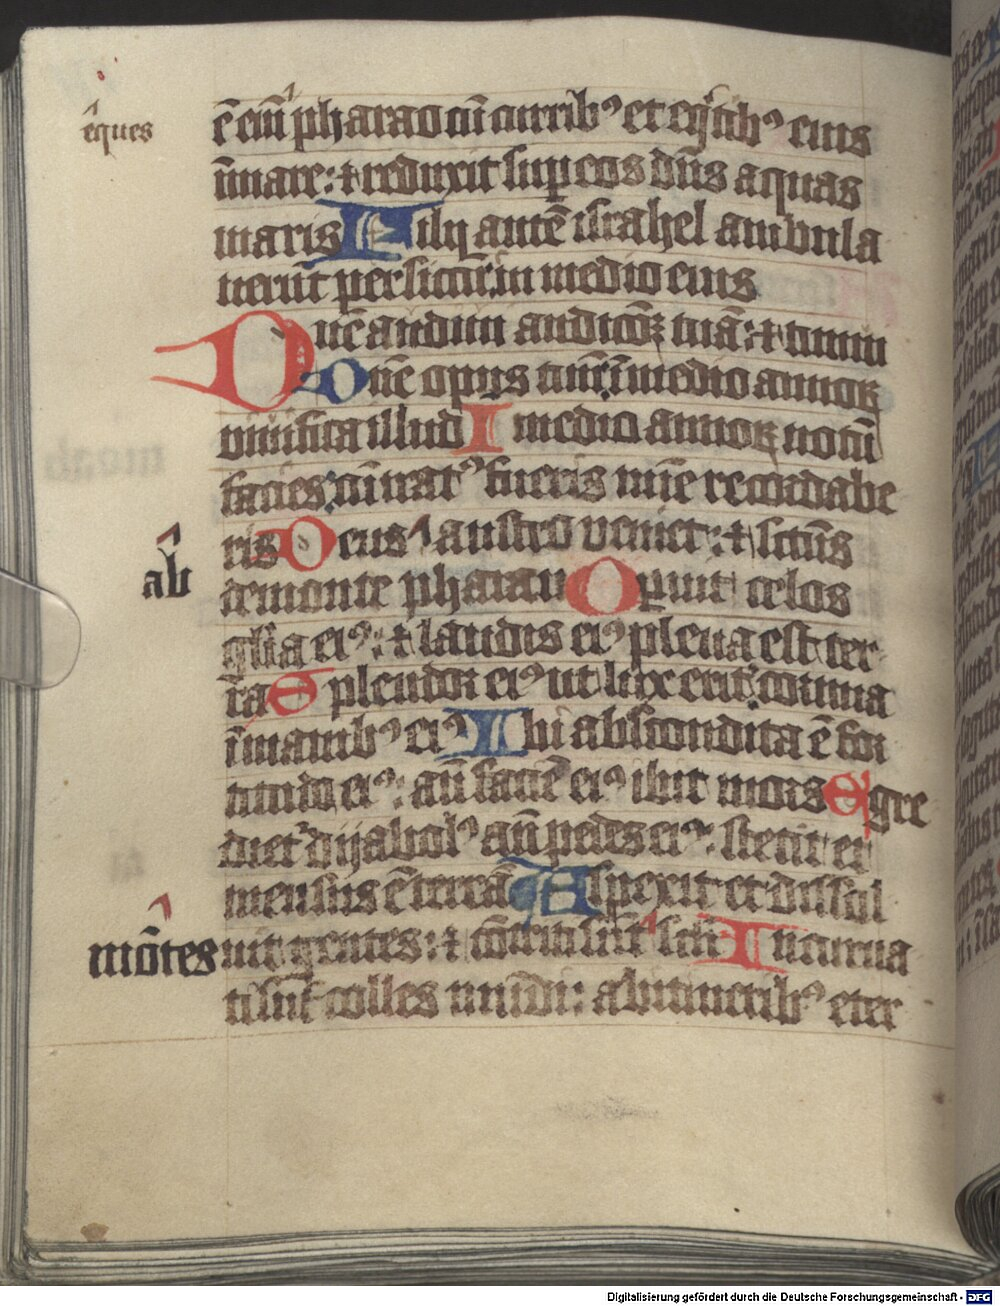 eq̄ues
ē em̄ pharao cū currib⁹ et eq̄tib⁹ eius
ī mare: ⁊ reduxit sup̱ eos dn̄s aquas
maris Filij autē israhel ambula
uerūt per siccū: in medio eius
Dn̄e audiui auditōꝝ tuā: ⁊ timui
Dn̄e opus tuū: ī medio annoꝝ
viuifica illud In medio annoꝝ notū
facies: cū irat⁹ fueris mīe recordabe
ris Deus ab austro veniet: ⁊ sctūs
ab
de monte pharan Operuit celos
gl̄ia ei⁹: ⁊ laudis ei⁹ plena est ter
ra Splendor ei⁹ ut lux erit: cornua
ī manib⁹ ei⁹ Ibi abscondita ē for
titudo ei⁹: an̄ faciē ei⁹ ibit mors Egre
diet᷑ dyabol⁹ an̄ pedes ei⁹: stetit et
mensus ē terrā Aspexit et dissol
uit gentes: ⁊ cōtriti sūt scl̄i Incurua
mōtes
ti sūt colles mūdi: ab itinerib⁹ eter
Digitalisierung gefördert durch die Deutsche Forschungsgemeinschaft - DFG